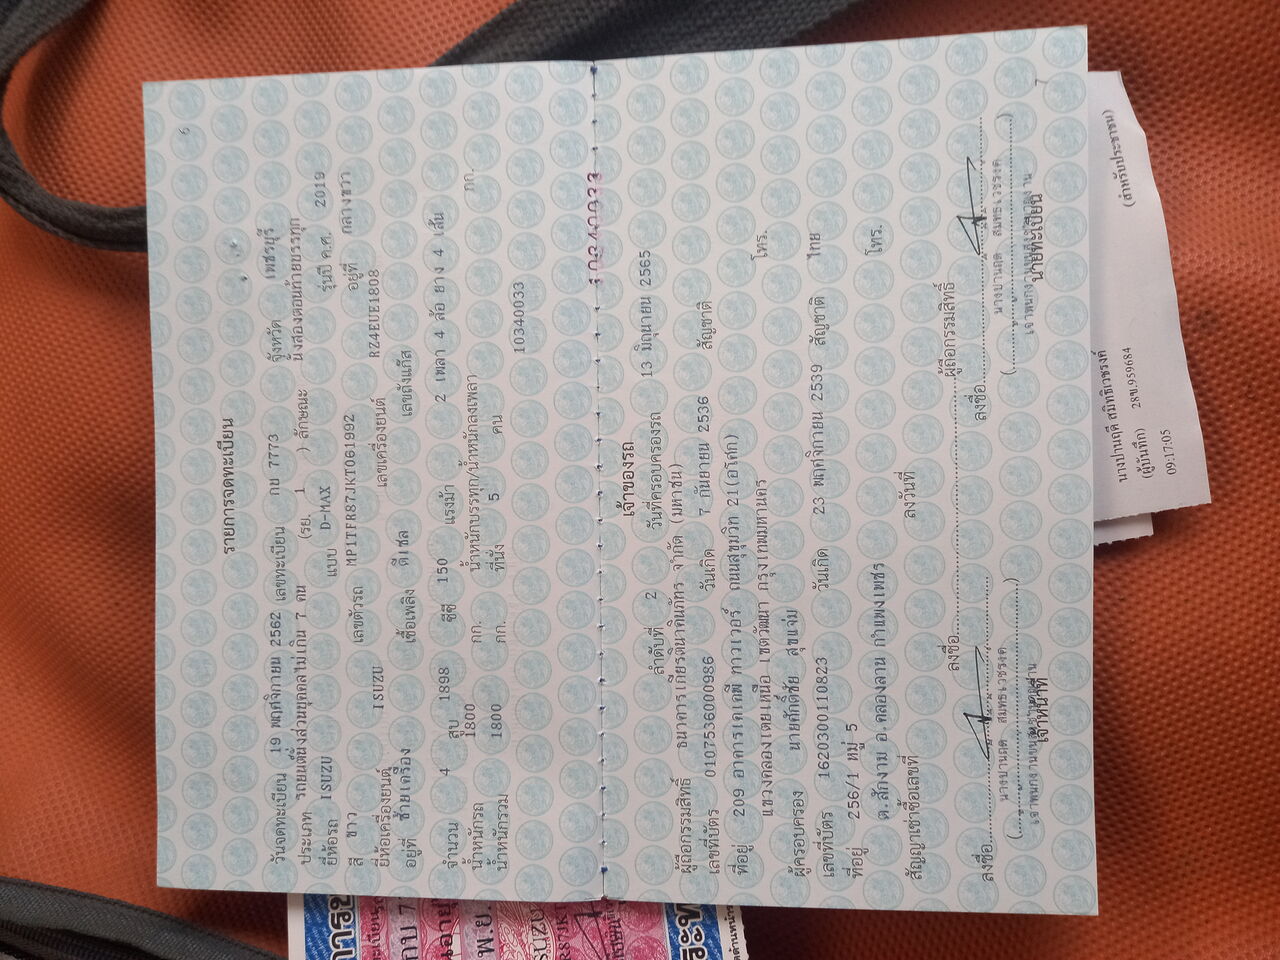 6
รายการจดทะเบียน
วันจดทะเบียน 19 พฤศจิกายน 2562 เลขทะเบียน กบ 7773 จังหวัด เพชรบุรี
ประเภท รถยนต์นั่งส่วนบุคคลไม่เกิน 7 คน (รย. 1 ) ลักษณะ นั่งสองตอนท้ายบรรทุก
ยี่ห้อรถ ISUZU แบบ D-MAX รุ่นปี ค.ศ. 2019
สี ขาว เลขตัวรถ MP1TFR87JKT061992 อยู่ที่ กลางขวา
ยี่ห้อเครื่องยนต์ ISUZU เลขเครื่องยนต์ RZ4EUE1808
อยู่ที่ ซ้ายเครื่อง เชื้อเพลิง ดีเซล เลขถังแก๊ส
จำนวน 4 สูบ 1898 ซีซี 150 แรงม้า 2 เพลา 4 ล้อ ยาง 4 เส้น
น้ำหนักรถ 1800 กก. น้ำหนักบรรทุก/น้ำหนักลงเพลา กก.
น้ำหนักรวม 1800 กก. ที่นั่ง 5 คน
10340033
เจ้าของรถ
ลำดับที่ 2 วันที่ครอบครองรถ 13 มิถุนายน 2565
ผู้ถือกรรมสิทธิ์ ธนาคารเกียรตินาคินภัทร จำกัด (มหาชน)
เลขที่บัตร 0107536000986 วันเกิด 7 กันยายน 2536 สัญชาติ
ที่อยู่ 209 อาคารเคเคพี ทาวเวอร์ ถนนสุขุมวิท 21(อโศก)
แขวงคลองเตยเหนือ เขตวัฒนา กรุงเทพมหานคร โทร.
ผู้ครอบครอง นายศักดิ์ชัย สุขแจ่ม
เลขที่บัตร 1620300110823 วันเกิด 23 พฤศจิกายน 2539 สัญชาติ ไทย
ที่อยู่ 256/1 หมู่ 5
ต.สักงาม อ.คลองลาน กำแพงเพชร โทร.
สัญญาเช่าซื้อเลขที่ ลงวันที่
ลงชื่อ ผู้ถือกรรมสิทธิ์
ลงชื่อ ลงชื่อ
เจ้าหน้าที่ นายทะเบียน
7
นางปานฤดี สมิทธิเวชรงค์ (สำหรับประชาชน)
(ผู้บันทึก) 28ข.959684
09:17:05
พ.ย.